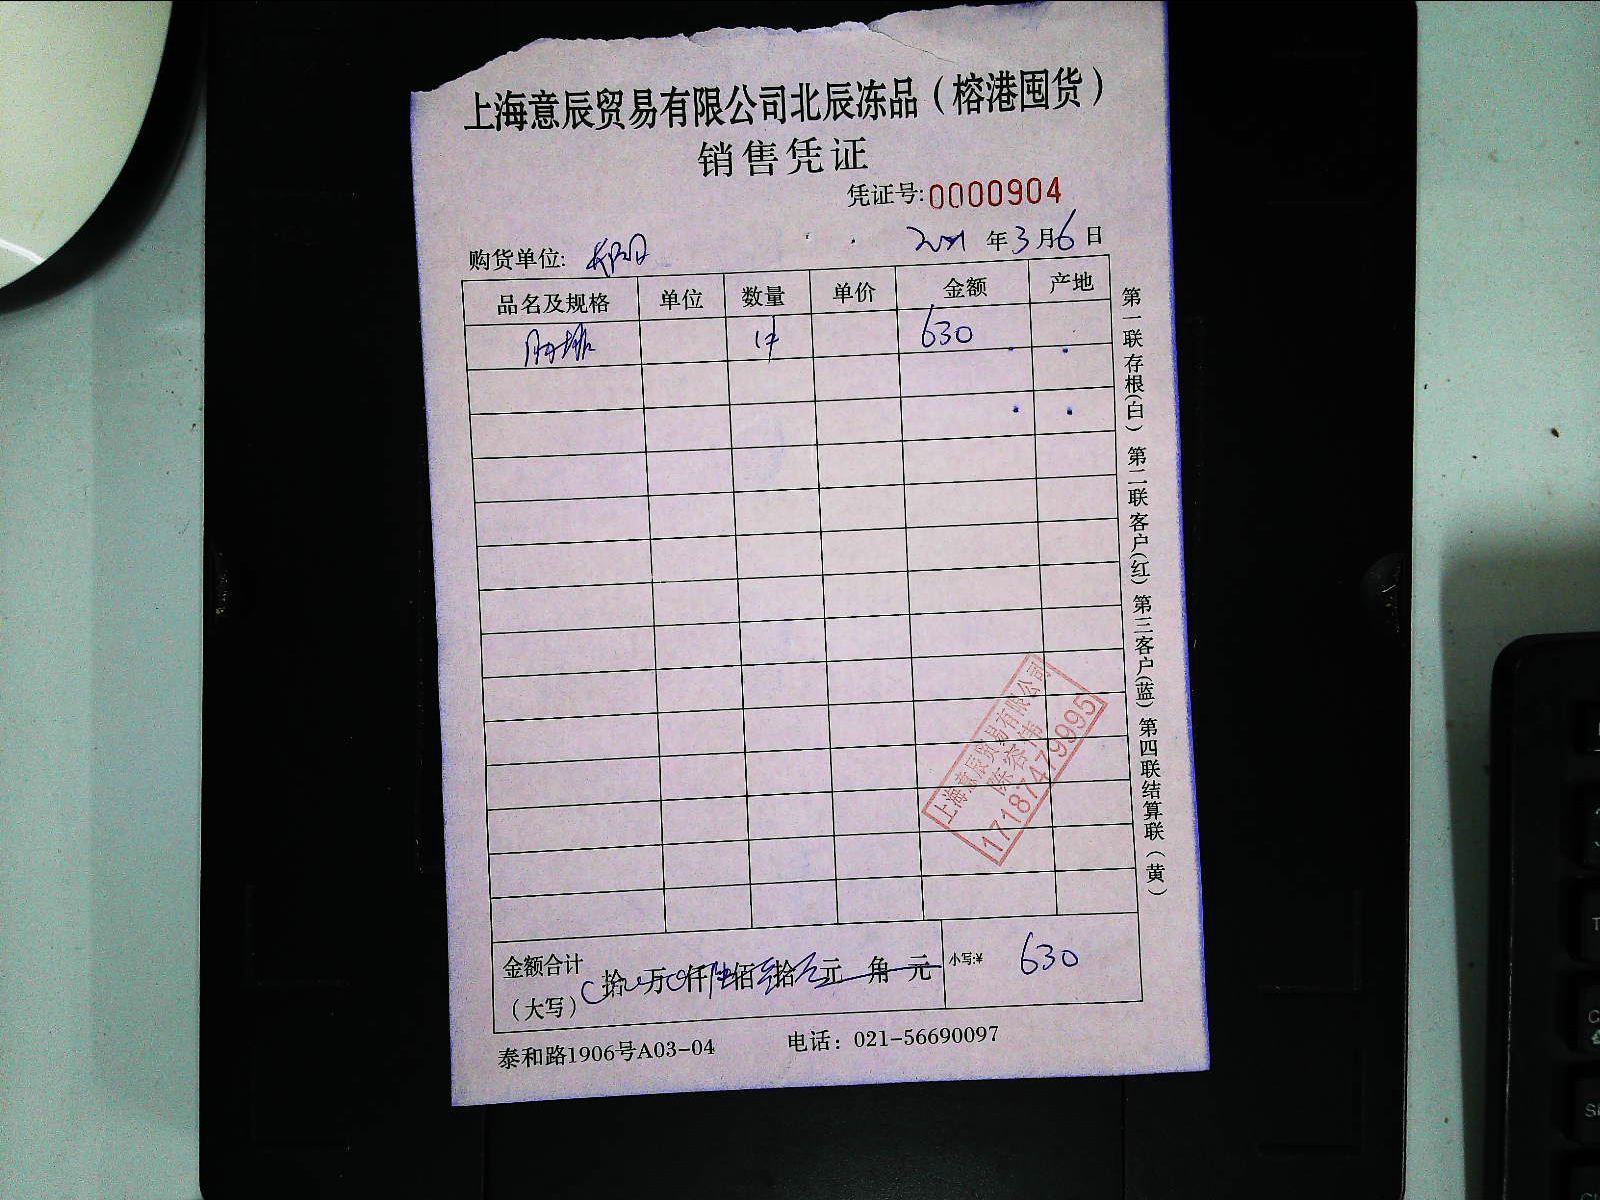 上海意辰贸易有限公司北辰冻品（榕港囤货）
销售凭证
凭证号:0000904
购货单位: 2021 年 3 月 6 日
品名及规格 单位 数量 单价 金额 产地
1件 630
第一联存根(白) 第二联客户(红) 第三客户(蓝) 第四联结算联（黄）
上海意辰贸易有限公司
17187479995
金额合计（大写） 拾 万 仟 陆佰 叁拾 元 角 元 小写:¥ 630
泰和路1906号A03-04 电话：021-56690097